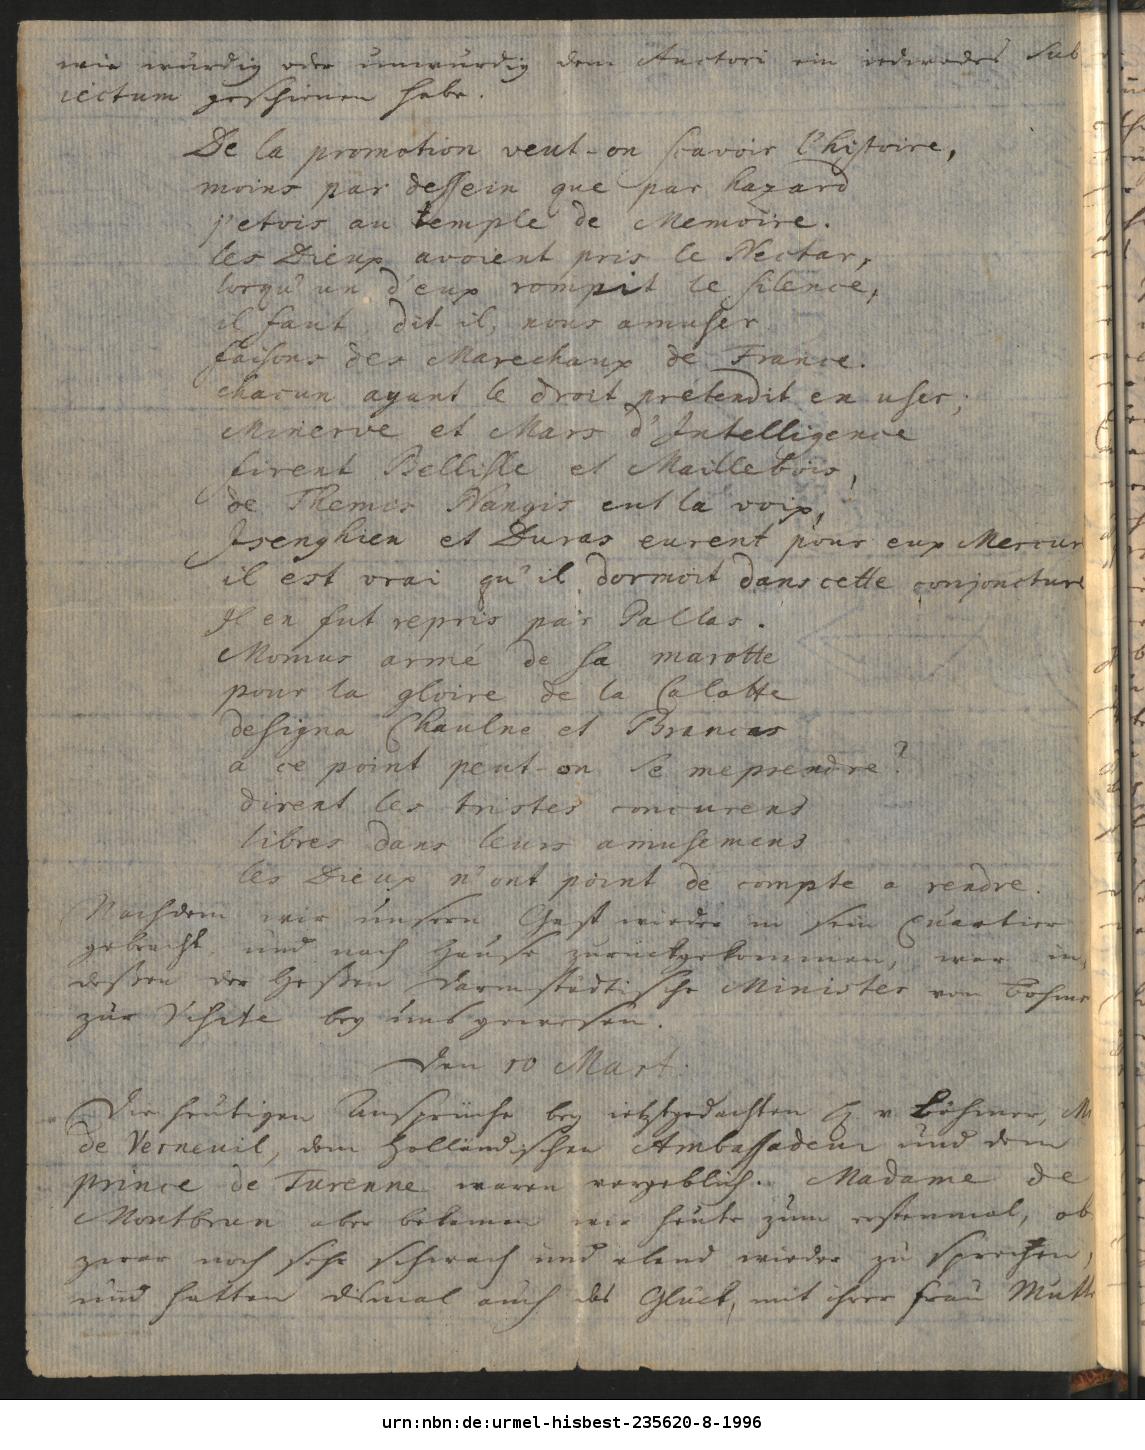 wie würdig oder unwürdig dem Auctori ein iedwedes Sub
iectum geschienen habe.
De la promotion veut-on scavoir l'histoire,
moins par dessein que par hazard
j'etois au temple de Memoire.
les Dieux avoient pris le Nectar,
lorqu'un d'eux rompit le silence,
il faut, dit-il, nous amuser
faisons des Marechaux de France.
chacun ayant le droit prétendit en user;
Minerve et Mars d'Intelligence
firent Bellisle et Maillebois,
de Themis Nangis eut la voix,
Isenghien et Duras eurent pour eux Mercur
il est vrai qu'il dormoit dans cette conjoncture
Il en fut repris par Pallas.
Momus armé de sa marotte
pour la gloire de la Calotte
designa Chaulne et Brancas
a ce point peut-on se meprendre?
dirent les tristes concurens
libres dans leurs amusemens
les Dieux n'ont point de compte a rendre.
Nachdem wir unsern Gast wieder in sein Quartier
gebracht und nach Hause zurückgekommen, war in,
deßen der Heßen Darmstädtische Minister von Böhme
zur Visite bey uns gewesen.
Den 10 Mart.
Die heutigen Ansprüche bey ietztgedachten H v Böhmer, M
de Verneuil, dem Holländischen Ambassadeur und dem
prince de Turenne waren vergeblich. Madame de
Montbrun aber bekamen wir heute zum erstenmal, ob
zwar noch sehr schwach und elend wieder zu sprechen,
und hatten dismal auch das Glück, mit ihrer Frau Mutt
urn:nbn:de:urmel-hisbest-235620-8-1996